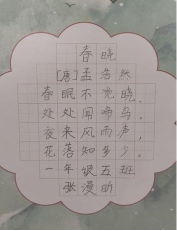 春晓
[唐]孟浩然
春眠不觉晓,
处处闻啼鸟,
夜来风雨声,
花落知多少。
一年级五班
张漫